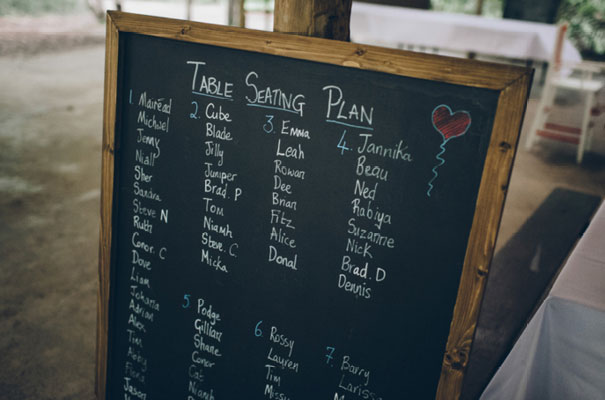 TABLE SEATING PLAN
1. Mairéad
Michael
Jenny
Niall
Sher
Sandra
Steve N
Ruth
Conor. C
Dave
Liam
Johana
Adrian
Alex
Tim
Abby
Fiona
Jason
2. Cube
Blade
Jilly
Juniper
Brad. P
Tom
Niamh
Steve. C
Micka
3. Emma
Leah
Rowan
Dee
Brian
Fitz
Alice
Donal
4. Jannika
Beau
Ned
Rabiya
Suzanne
Nick
Brad. D
Dennis
5. Podge
Gillian
Shane
Conor
Cat
Niamh
6. Rossy
Lauren
Tim
7. Barry
Larissa